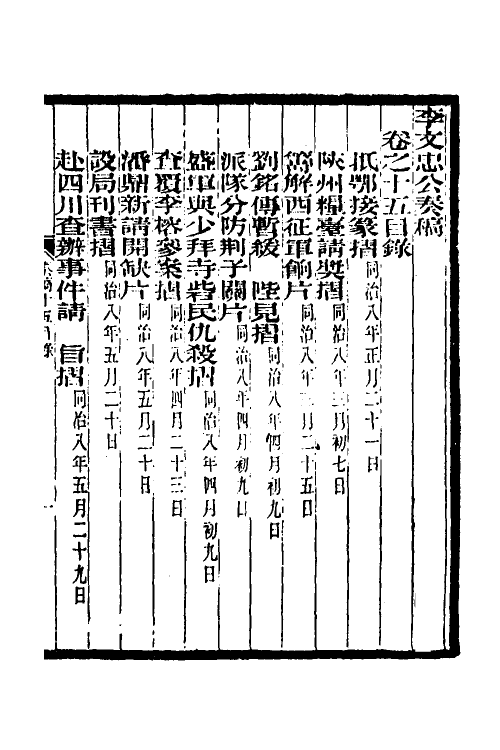 李文忠公奏稿
卷之十五目錄
抵鄂接篆摺同治八年正月二十一日
陝州糧臺請獎摺同治八年三月初七日
籌解西征軍餉片同治八年三月二十五日
劉銘傳暫緩　陛見摺同治八年四月初九日
派隊分防荆子關片同治八年四月初九日
盛軍與少拜寺砦民仇殺摺同治八年四月初九日
查覆李榕參案摺同治八年四月二十三日
潘鼎新請開缺片同治八年五月二十日
設局刊書摺同治八年五月二十日
赴四川查辦事件請　旨摺同治八年五月二十九日
奏稿十五目錄
一